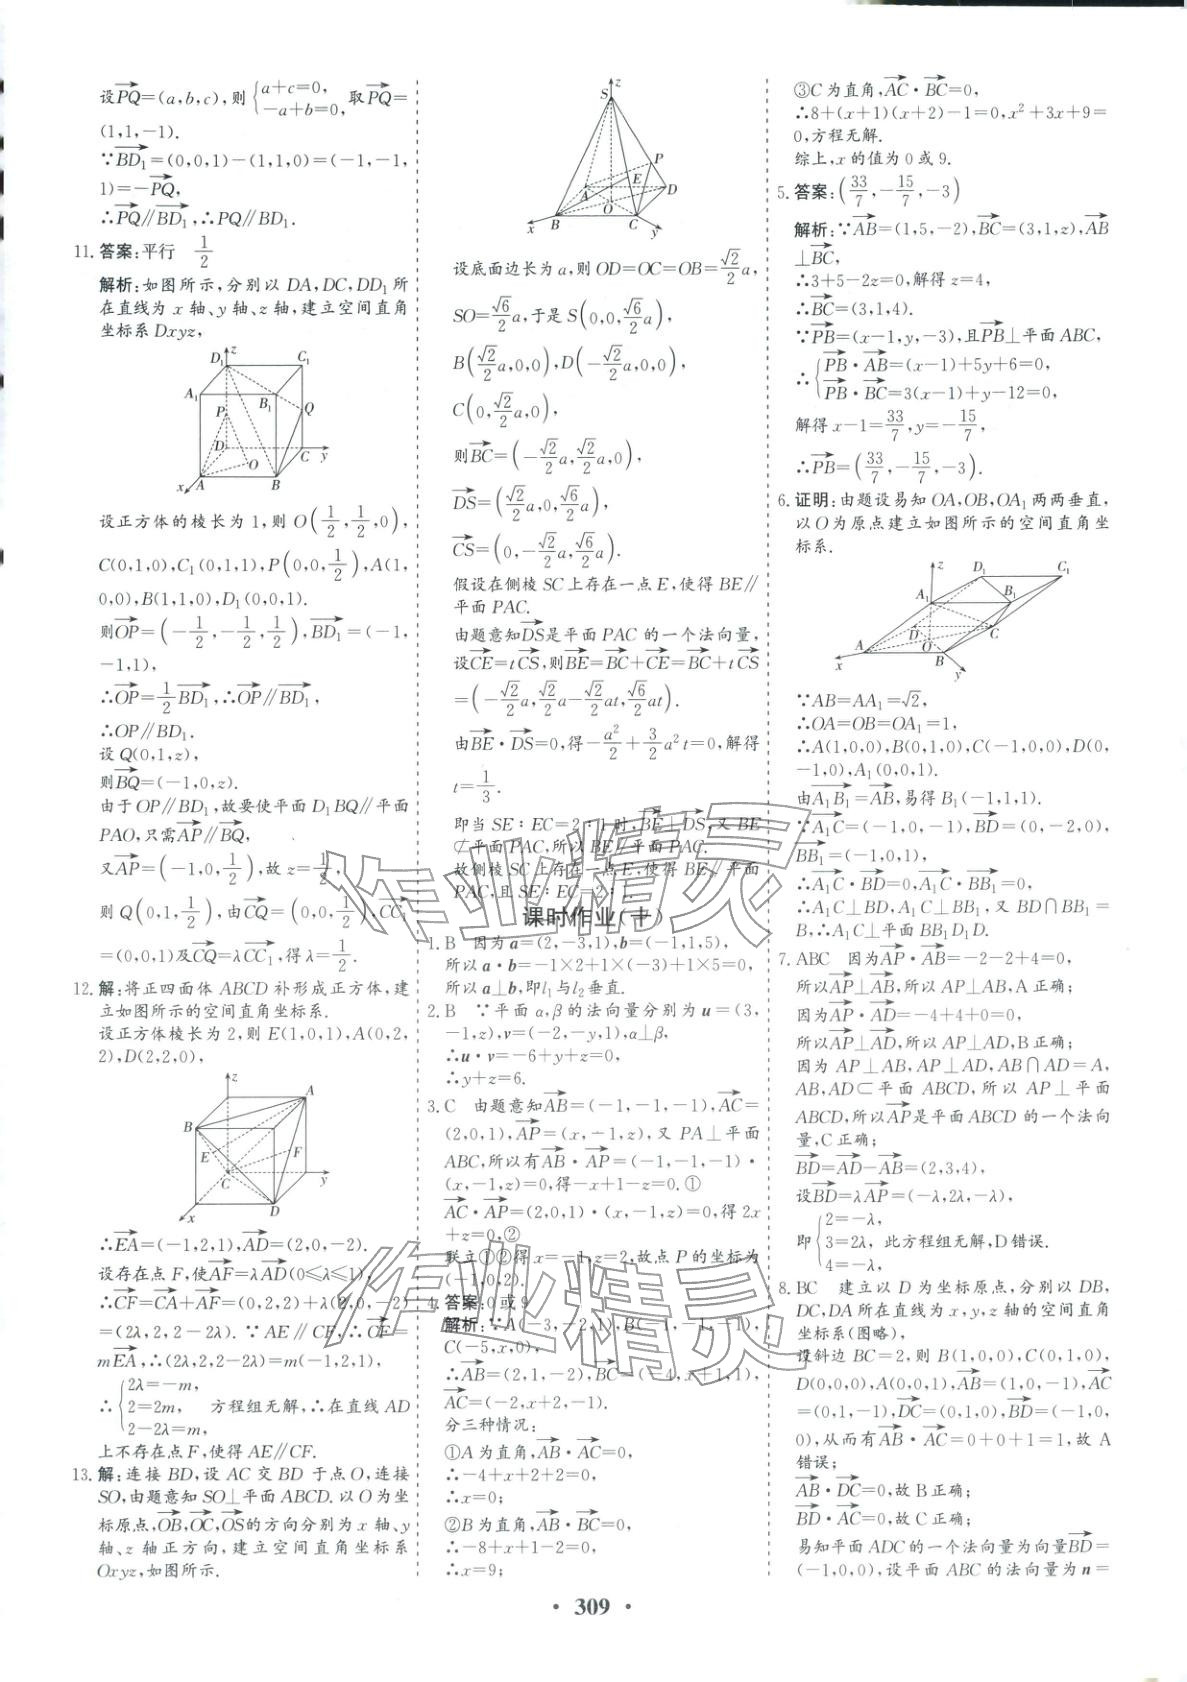 设PQ=(a,b,c),则{a+c=0, -a+b=0, 取PQ=
(1,1,-1).
∵BD₁=(0,0,1)-(1,1,0)=(-1,-1,
1)=-PQ,
∴PQ∥BD₁,∴PQ∥BD₁.
11. 答案:平行 1/2
解析:如图所示,分别以 DA,DC,DD₁所
在直线为 x 轴、y 轴、z 轴,建立空间直角
坐标系 Dxyz,
D₁ z C₁
A₁ B₁
P Q
D
O C y
x A B
设正方体的棱长为 1,则 O(1/2,1/2,0),
C(0,1,0),C₁(0,1,1),P(0,0,1/2),A(1,
0,0),B(1,1,0),D₁(0,0,1).
则OP=(-1/2,-1/2,1/2),BD₁=(-1,
-1,1),
∴OP=1/2BD₁,∴OP∥BD₁,
∴OP∥BD₁.
设 Q(0,1,z),
则BQ=(-1,0,z).
由于 OP∥BD₁,故要使平面 D₁BQ∥平面
PAO,只需AP∥BQ,
又AP=(-1,0,1/2),故 z=1/2,
则 Q(0,1,1/2),由CQ=(0,0,1/2),CC₁
=(0,0,1)及CQ=λCC₁,得λ=1/2.
12. 解:将正四面体 ABCD 补形成正方体,建
立如图所示的空间直角坐标系.
设正方体棱长为 2,则 E(1,0,1),A(0,2,
2),D(2,2,0),
z A
B
E F
C y
x D
∴EA=(-1,2,1),AD=(2,0,-2).
设存在点 F,使AF=λAD(0≤λ≤1),
∴CF=CA+AF=(0,2,2)+λ(2,0,-2)
=(2λ,2,2-2λ).∵AE∥CF,∴CF=
mEA,∴(2λ,2,2-2λ)=m(-1,2,1),
∴{2λ=-m, 2=2m, 2-2λ=m, 方程组无解,∴在直线 AD
上不存在点 F,使得 AE∥CF.
13. 解:连接 BD,设 AC 交 BD 于点 O,连接
SO,由题意知 SO⊥平面 ABCD. 以 O 为坐
标原点,OB,OC,OS的方向分别为 x 轴、y
轴、z 轴正方向,建立空间直角坐标系
Oxyz,如图所示.
z
S
P
E
A D
O
x B C y
设底面边长为 a,则 OD=OC=OB=√2/2a,
SO=√6/2a,于是 S(0,0,√6/2a),
B(√2/2a,0,0),D(-√2/2a,0,0),
C(0,√2/2a,0),
则BC=(-√2/2a,√2/2a,0),
DS=(√2/2a,0,√6/2a),
CS=(0,-√2/2a,√6/2a).
假设在侧棱 SC 上存在一点 E,使得 BE∥
平面 PAC.
由题意知DS是平面 PAC 的一个法向量,
设CE=tCS,则BE=BC+CE=BC+tCS
=(-√2/2a,√2/2a-√2/2at,√6/2at).
由BE·DS=0,得-a²/2+3/2a²t=0,解得
t=1/3.
即当 SE∶EC=2∶1时,BE⊥DS,又 BE
⊄平面 PAC,所以 BE∥平面 PAC.
故侧棱 SC 上存在一点 E,使得 BE∥平面
PAC,且 SE∶EC=2∶1.
课时作业(十)
1. B 因为 a=(2,-3,1),b=(-1,1,5),
所以 a·b=-1×2+1×(-3)+1×5=0,
所以 a⊥b,即l₁与l₂垂直.
2. B ∵平面 α,β 的法向量分别为 u=(3,
-1,z),v=(-2,-y,1),α⊥β,
∴u·v=-6+y+z=0.
∴y+z=6.
3. C 由题意知AB=(-1,-1,-1),AC=
(2,0,1),AP=(x,-1,z),又 PA⊥平面
ABC,所以有AB·AP=(-1,-1,-1)·
(x,-1,z)=0,得-x+1-z=0.①
AC·AP=(2,0,1)·(x,-1,z)=0,得 2x
+z=0,②
联立①②得 x=-1,z=2,故点 P 的坐标为
(-1,0,2).
4. 答案:0 或 9
解析:∵A(-3,-2,1),B(-4,-1,-1),
C(-5,x,0),
∴AB=(-1,1,-2),BC=(-1,x+1,1),
AC=(-2,x+2,-1).
分三种情况:
①A 为直角,AB·AC=0,
∴-4+x+2+2=0,
∴x=0;
②B 为直角,AB·BC=0,
∴-8+x+1-2=0,
∴x=9;
③C 为直角,AC·BC=0,
∴8+(x+1)(x+2)-1=0,x²+3x+9=
0,方程无解.
综上,x 的值为 0 或 9.
5. 答案:(33/7,-15/7,-3)
解析:∵AB=(1,5,-2),BC=(3,1,z),AB
⊥BC,
∴3+5-2z=0,解得 z=4,
∴BC=(3,1,4).
∵PB=(x-1,y,-3),且PB⊥平面 ABC,
∴{PB·AB=(x-1)+5y+6=0, PB·BC=3(x-1)+y-12=0,
解得 x-1=33/7,y=-15/7,
∴PB=(33/7,-15/7,-3).
6. 证明:由题设易知 OA,OB,OA₁两两垂直,
以 O 为原点建立如图所示的空间直角坐
标系.
z D₁ C₁
A₁ B₁
D C
A O
x B y
∵AB=AA₁=√2,
∴OA=OB=OA₁=1,
∴A(1,0,0),B(0,1,0),C(-1,0,0),D(0,
-1,0),A₁(0,0,1).
由A₁B₁=AB,易得 B₁(-1,1,1).
∵A₁C=(-1,0,-1),BD=(0,-2,0),
BB₁=(-1,0,1),
∴A₁C·BD=0,A₁C·BB₁=0,
∴A₁C⊥BD,A₁C⊥BB₁,又 BD∩BB₁=
B,∴A₁C⊥平面 BB₁D₁D.
7. ABC 因为AP·AB=-2-2+4=0,
所以AP⊥AB,所以 AP⊥AB,A 正确;
因为AP·AD=-4+4+0=0,
所以AP⊥AD,所以 AP⊥AD,B 正确;
因为 AP⊥AB,AP⊥AD,AB∩AD=A,
AB,AD⊂平面 ABCD,所以 AP⊥平面
ABCD,所以AP是平面 ABCD 的一个法向
量,C 正确;
BD=AD-AB=(2,3,4),
设BD=λAP=(-λ,2λ,-λ),
即{2=-λ, 3=2λ, 4=-λ, 此方程组无解,D 错误.
8. BC 建立以 D 为坐标原点,分别以 DB,
DC,DA 所在直线为 x,y,z 轴的空间直角
坐标系(图略),
设斜边 BC=2,则 B(1,0,0),C(0,1,0),
D(0,0,0),A(0,0,1),AB=(1,0,-1),AC
=(0,1,-1),DC=(0,1,0),BD=(-1,0,
0),从而有AB·AC=0+0+1=1,故 A
错误;
AB·DC=0,故 B 正确;
BD·AC=0,故 C 正确;
易知平面 ADC 的一个法向量为向量BD=
(-1,0,0),设平面 ABC 的法向量为 n=
• 309 •
作业精灵
作业精灵